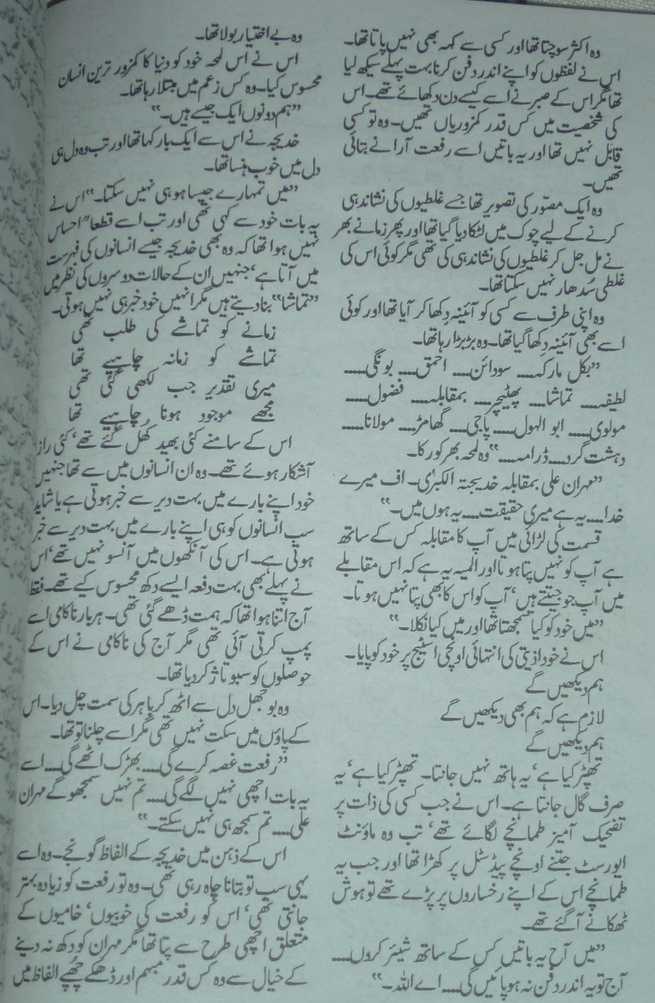 وہ اکثر سوچتا تھا اور کسی سے کہہ بھی نہیں پاتا تھا۔
اس نے لفظوں کو اپنے اندر دفن کرنا بہت پہلے سیکھ لیا
تھا مگر اس کے صبر نے اسے کیسے دن دکھائے تھے۔ اس
کی شخصیت میں کس قدر کمزوریاں تھیں۔ وہ تو کسی
قابل نہیں تھا اور یہ باتیں اسے رفعت آرا نے بتائی
تھیں۔
وہ ایک مصور کی تصویر تھا جسے غلطیوں کی نشاندہی
کرنے کے لیے چوک میں لٹکا دیا گیا تھا اور پھر زمانے بھر
نے مل جل کر غلطیوں کی نشاندہی کی تھی مگر کوئی اس کی
غلطی سُدھار نہیں سکتا تھا۔
وہ اپنی طرف سے کسی کو آئینہ دکھا کر آیا تھا اور کوئی
اسے بھی آئینہ دکھا گیا تھا۔ وہ بڑبڑا رہا تھا۔
”بکل مارکہ۔۔۔۔ سودائن۔۔۔۔ احمق۔۔۔۔ بونگی۔۔۔۔
لطیفہ۔۔۔۔ تماشا۔۔۔۔ پھٹیچر۔۔۔۔ بمقابلہ۔۔۔۔ فضول۔۔۔۔
مولوی۔۔۔۔ ابو الہول۔۔۔۔ پاجی۔۔۔۔ گھامڑ۔۔۔۔ مولانا۔۔۔۔
دہشت گرد۔۔۔۔ ڈرامہ۔۔۔۔“ وہ لمحہ بھر کو رکا۔
”مہران علی بمقابلہ خدیجتہ الکبریٰ۔ اف میرے
خدا۔۔۔۔ یہ ہے میری حقیقت۔۔۔۔ یہ ہوں میں۔“
قسمت کی لڑائی میں آپ کا مقابلہ کس کے ساتھ
ہے آپ کو نہیں پتا ہوتا اور المیہ یہ ہے کہ اس مقابلے
میں آپ جو جیتتے ہیں‘ آپ کو اس کا بھی پتا نہیں ہوتا۔
”میں خود کو کیا سمجھتا تھا اور میں کیا نکلا۔“
اس نے خود اذیتی کی انتہائی اونچی اسٹیج پر خود کو پایا۔
ہم دیکھیں گے
لازم ہے کہ ہم بھی دیکھیں گے
ہم دیکھیں گے
تھپڑ کیا ہے‘ یہ ہاتھ نہیں جانتا۔ تھپڑ کیا ہے‘ یہ
صرف گال جانتا ہے۔ اس نے جب کسی کی ذات پر
تضحیک آمیز طمانچے لگائے تھے‘ تب وہ ماؤنٹ
ایورسٹ جتنے اونچے پیڈسٹل پر کھڑا تھا اور جب یہ
طمانچے اس کے اپنے رخساروں پر پڑے تھے تو ہوش
ٹھکانے آ گئے تھے۔
”میں آج یہ باتیں کس کے ساتھ شیئر کروں۔۔۔۔
آج تو یہ اندر دفن نہ ہو پائیں گی۔۔۔۔ اے اللہ۔“
وہ بے اختیار بولا تھا۔
اس نے اس لمحہ خود کو دنیا کا کمزور ترین انسان
محسوس کیا۔ وہ کس زعم میں مبتلا رہا تھا۔
”ہم دونوں ایک جیسے ہیں۔“
خدیجہ نے اس سے ایک بار کہا تھا اور تب وہ دل ہی
دل میں خوب ہنسا تھا۔
”میں تمہارے جیسا ہو ہی نہیں سکتا۔“ اس نے
یہ بات خود سے کہی تھی اور تب اسے قطعا″ احساس
نہیں ہوا تھا کہ وہ بھی خدیجہ جیسے انسانوں کی فہرست
میں آتا ہے‘ جنہیں ان کے حالات دوسروں کی نظر میں
”تماشا“ بنا دیتے ہیں مگر انہیں خود خبر ہی نہیں ہوتی۔
زمانے کو تماشے کی طلب تھی
تماشے کو زمانہ چاہیے تھا
میری تقدیر جب لکھی گئی تھی
مجھے موجود ہونا چاہیے تھا
اس کے سامنے کئی بھید کھل گئے تھے‘ کئی راز
آشکار ہوئے تھے۔ وہ ان انسانوں میں سے تھا جنہیں
خود اپنے بارے میں بہت دیر سے خبر ہوتی ہے یا شاید
سب انسانوں کو ہی اپنے بارے میں بہت دیر سے خبر
ہوتی ہے۔ اس کی آنکھوں میں آنسو نہیں تھے‘ اس
نے پہلے بھی بہت دفعہ ایسے دکھ محسوس کیے تھے۔ فقط
آج اتنا ہوا تھا کہ ہمت ڈھے گئی تھی۔ ہر بار ناکامی اسے
پمپ کرتی آئی تھی مگر آج کی ناکامی نے اس کے
حوصلوں کو سبوتاژ کر دیا تھا۔
وہ بوجھل دل سے اٹھ کر باہر کی سمت چل دیا۔ اس
کے پاؤں میں سکت نہیں تھی مگر اسے چلنا تو تھا۔
”رفعت غصہ کرے گی۔۔۔۔ بھڑک اٹھے گی۔۔۔۔ اسے
یہ بات اچھی نہیں لگے گی۔۔۔۔ تم نہیں سمجھو گے مہران
علی۔۔۔۔ تم سمجھ ہی نہیں سکتے۔“
اس کے ذہن میں خدیجہ کے الفاظ گونجے۔ وہ اسے
یہی سب تو بتانا چاہ رہی تھی۔ وہ تو رفعت کو زیادہ بہتر
جانتی تھی‘ اس کو رفعت کی خوبیوں‘ خامیوں کے
متعلق اچھی طرح سے پتا تھا مگر مہران کو دکھ نہ دینے
کے خیال سے وہ کس قدر مبہم اور ڈھکے چھپے الفاظ میں